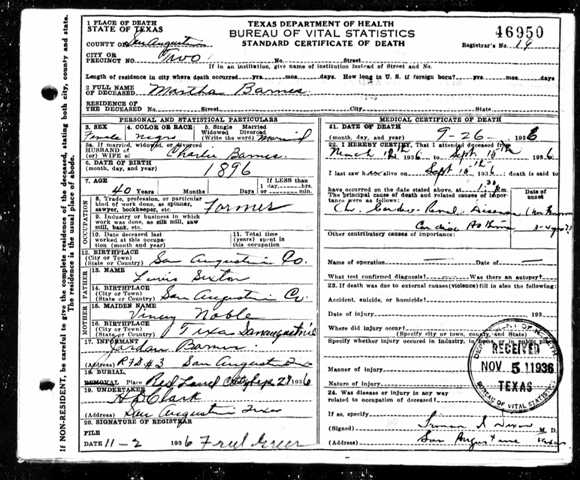 1 PLACE OF DEATH
STATE OF TEXAS
TEXAS DEPARTMENT OF HEALTH
BUREAU OF VITAL STATISTICS
STANDARD CERTIFICATE OF DEATH
46950
COUNTY OF San Augustine
Registrar's No. 19
CITY OR
PRECINCT NO. Two
No. Street
If in an institution, give name of institution instead of Street and No.
Length of residence in city where death occurred. yrs. mos. days. How long in U. S. if foreign born? yrs. mos. days.
2 FULL NAME
OF DECEASED Martha Barnes
RESIDENCE OF
THE DECEASED No. Street City State
PERSONAL AND STATISTICAL PARTICULARS
3. SEX
Female
4. COLOR OR RACE
Negro
5. Single Married
Widowed Divorced
(Write the word) Married
5a. If married, widowed or divorced
HUSBAND OF
(or) WIFE of Charlie Barnes
6. DATE OF BIRTH
(month, day, and year) 1896
7. AGE
40 Years Months Days
If LESS than
1 day, hrs.
or min.
OCCUPATION
8. Trade, profession, or particular
kind of work done, as spinner,
sawyer, bookkeeper, etc. Farmer
9. Industry or business in which
work was done, as silk mill, saw
mill, bank, etc.
10. Date deceased last
worked at this occupa-
tion (month and year)
11. Total time (years)
spent in
this occupation
12. BIRTHPLACE
(City or Town)
(State or Country) San Augustine Co.
FATHER
13. NAME
Lewis Sexton
14. BIRTHPLACE
(City or Town)
(State or Country) San Augustine Co
MOTHER
15. MAIDEN NAME
Noble
16. BIRTHPLACE
(City or Town)
(State or Country) Texas San Augustine
17 INFORMANT
Jordan Barnes
(Address) Rfd #3 San Augustine
18. BURIAL
REMOVAL Place Red Land Date Sept 27 1936
19. UNDERTAKER
Clark
(Address) San Augustine Texas
20. SIGNATURE OF REGISTRAR
FILE
DATE 11-2 1936 Fred Greer
MEDICAL CERTIFICATE OF DEATH
21. DATE OF DEATH
(month, day, and year) 9-26- 1936
22. I HEREBY CERTIFY, That I attended deceased from
1936 to Sept 1936
I last saw h alive on Sept 1936 death is said to
have occurred on the date stated above, at 1:30 m.
The principal cause of death and related causes of import-
ance were as follows:
Date of
onset
Ch. Cardio-Renal Disease
Cardiac Asthma
Other contributory causes of importance:
Name of operation date of
What test confirmed diagnosis? Was there an autopsy?
23. If death was due to external causes (violence) fill in also the
following:
Accident, suicide, or homicide?
Date of injury 193
Where did injury occur?
(Specify city or town, county, and State)
Specify whether injury occured in Industry, in home, or in public
place.
Manner of injury
Nature of injury
24. Was disease or injury in any way
related to occupation of deceased?
If so, specify
(Signed) M. D.
(Address) San Augustine Texas
DEPARTMENT OF HEALTH
RECEIVED
NOV 5 1936
TEXAS
BUREAU OF VITAL STATISTICS
If NON-RESIDENT, be careful to give the complete residence of the deceased, stating both city, county and state.
The residence is the usual place of abode.